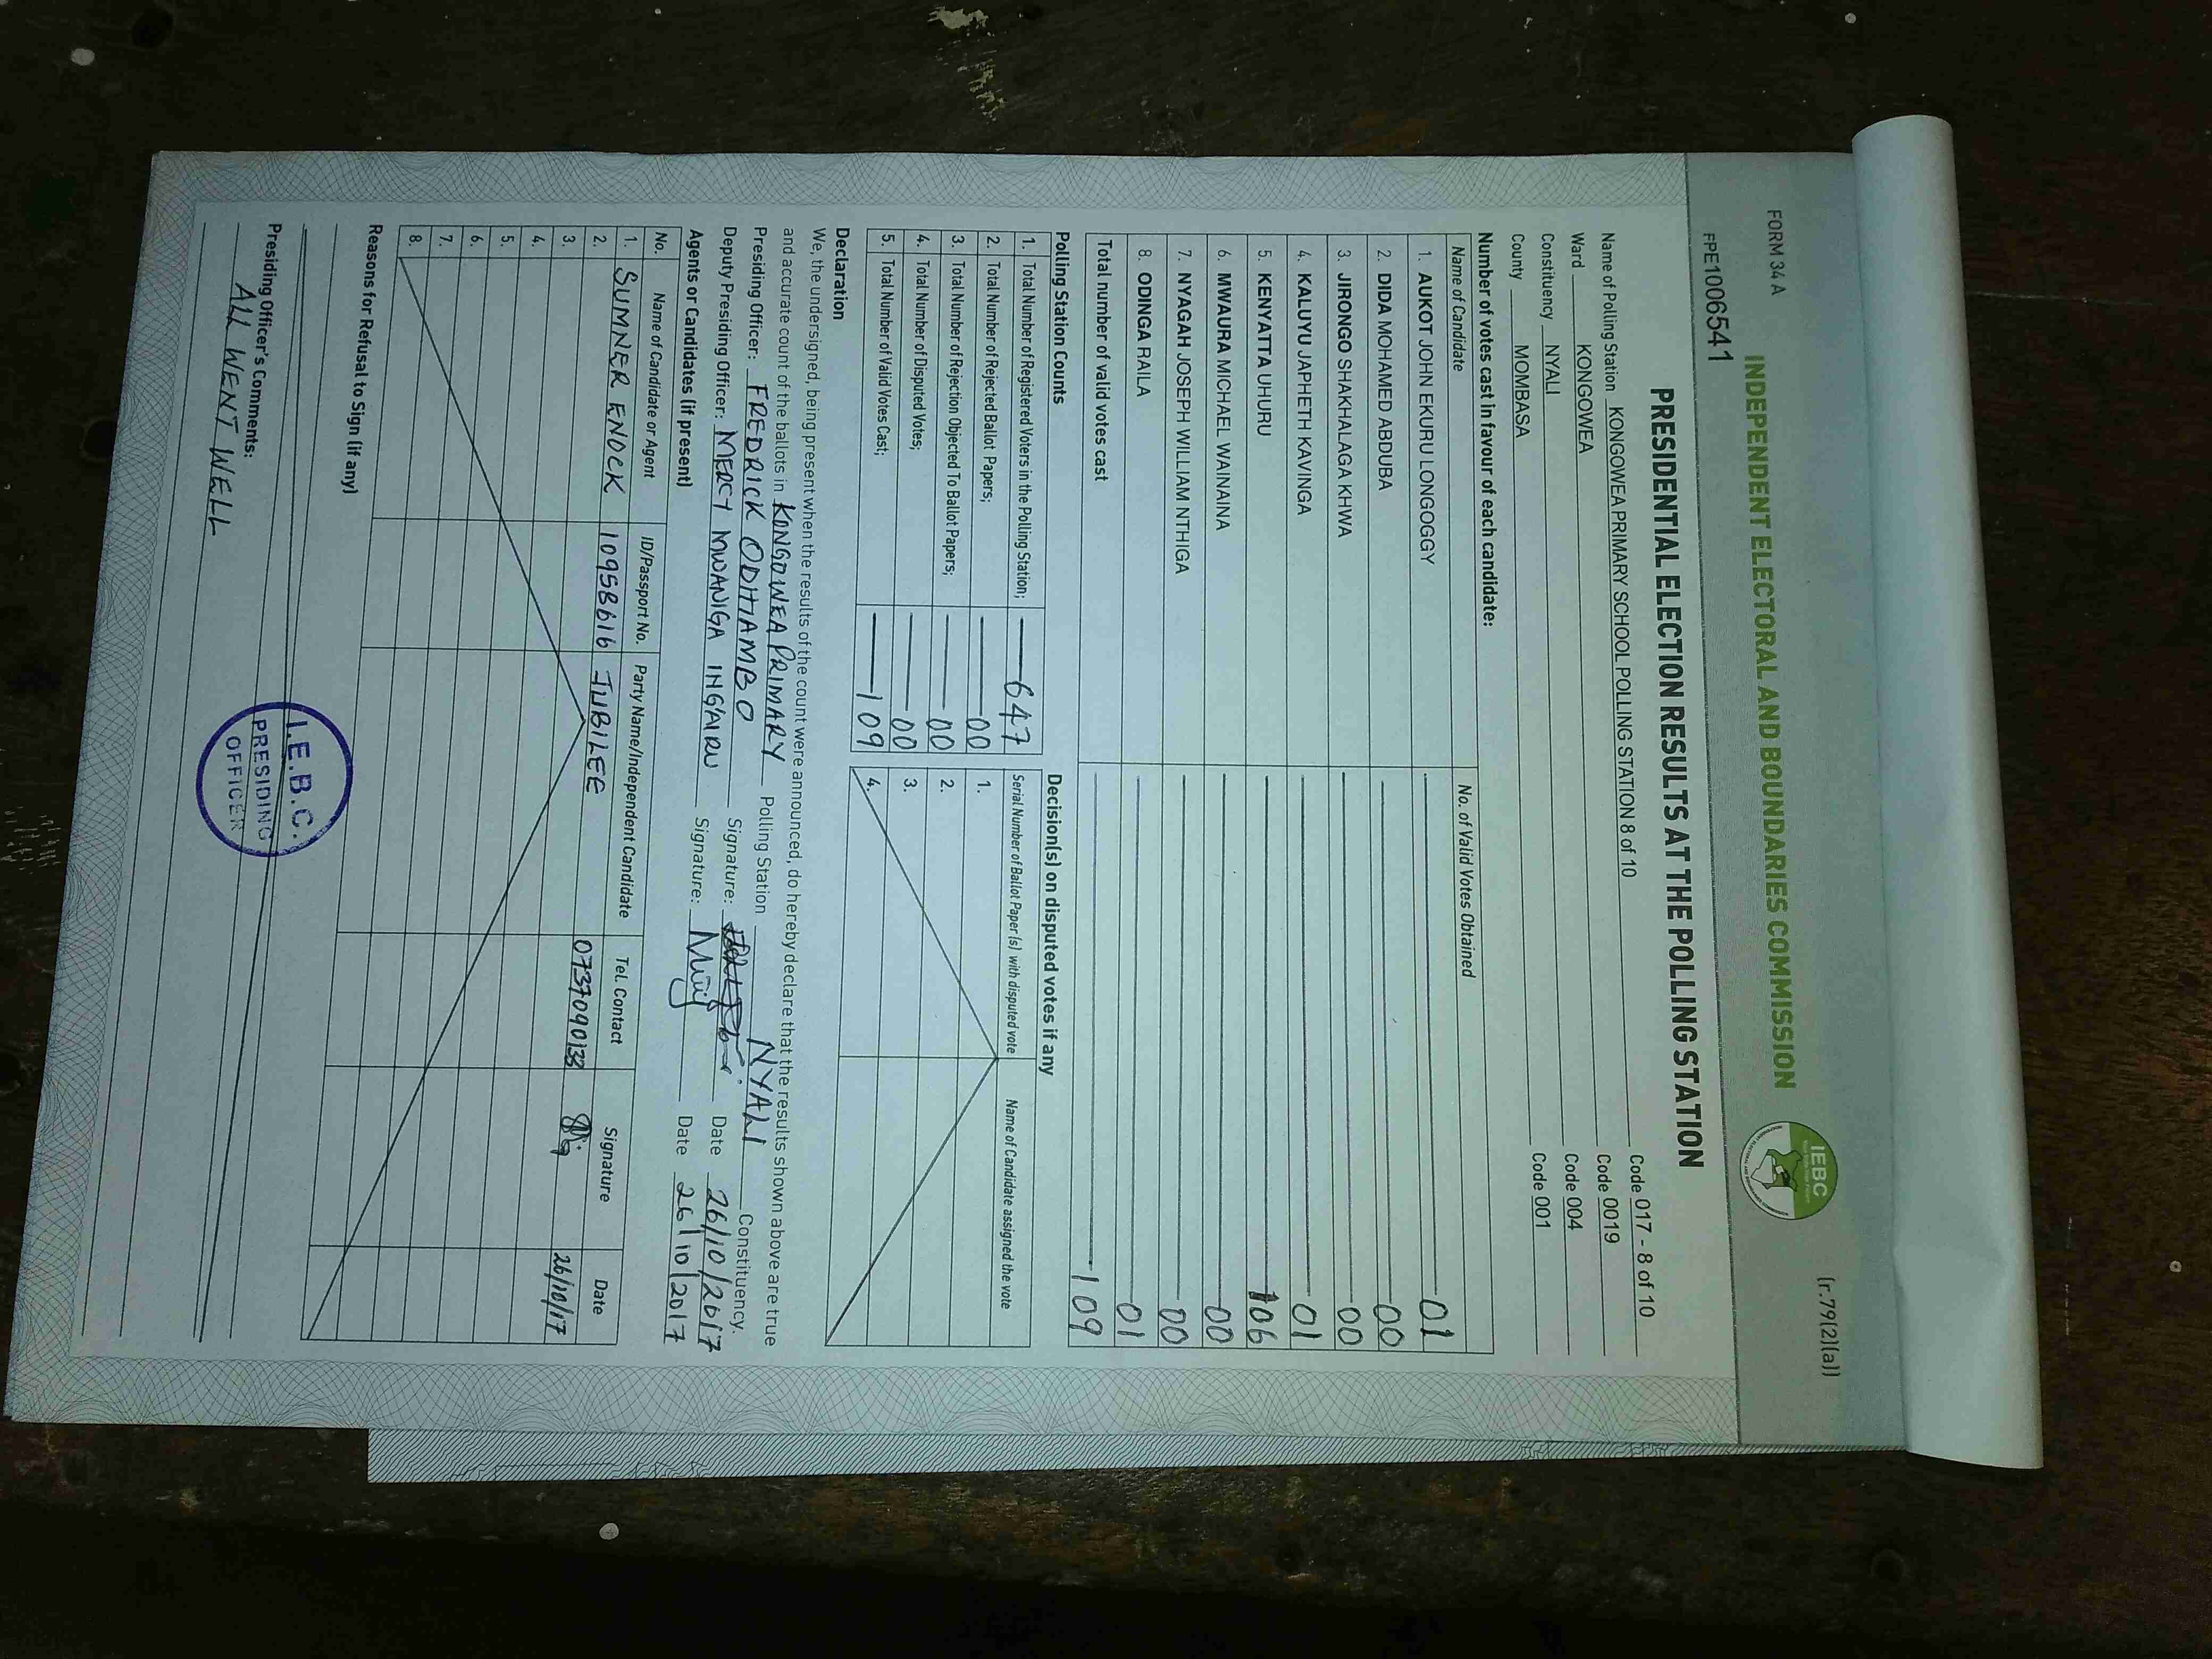 FORM 34 A
(r.79(2)(a))
INDEPENDENT ELECTORAL AND BOUNDARIES COMMISSION
IEBC
FPE1006541
PRESIDENTIAL ELECTION RESULTS AT THE POLLING STATION
Name of Polling Station KONGOWEA PRIMARY SCHOOL POLLING STATION 8 of 10 Code 017 - 8 of 10
Ward KONGOWEA Code 0019
Constituency NYALI Code 004
County MOMBASA Code 001
Number of votes cast in favour of each candidate:
Name of Candidate No. of Valid Votes Obtained
1. AUKOT JOHN EKURU LONGOGGY 01
2. DIDA MOHAMED ABDUBA 00
3. JIRONGO SHAKHALAGA KHWA 00
4. KALUYU JAPHETH KAVINGA 01
5. KENYATTA UHURU 106
6. MWAURA MICHAEL WAINAINA 00
7. NYAGAH JOSEPH WILLIAM NTHIGA 00
8. ODINGA RAILA 01
Total number of valid votes cast 109
Polling Station Counts
1. Total Number of Registered Voters in the Polling Station; 647
2. Total Number of Rejected Ballot Papers; 00
3. Total Number of Rejection Objected To Ballot Papers; 00
4. Total Number of Disputed Votes; 00
5. Total Number of Valid Votes Cast; 109
Decision(s) on disputed votes if any
Serial Number of Ballot Paper (s) with disputed vote Name of Candidate assigned the vote
1.
2.
3.
4.
Declaration
We, the undersigned, being present when the results of the count were announced, do hereby declare that the results shown above are true
and accurate count of the ballots in KONGOWEA PRIMARY Polling Station NYALI Constituency.
Presiding Officer: FREDRICK ODHIAMBO Signature: Date 26/10/2017
Deputy Presiding Officer: MERCY MWANIGA INGAIRU Signature: Date 26/10/2017
Agents or Candidates (if present)
No. Name of Candidate or Agent ID/Passport No. Party Name/Independent Candidate Tel. Contact Signature Date
1. SUMNER ENOCK 10958616 JUBILEE 0737090133 26/10/17
2.
3.
4.
5.
6.
7.
8.
Reasons for Refusal to Sign (if any)
Presiding Officer's Comments:
ALL WENT WELL
I.E.B.C.
PRESIDING
OFFICER